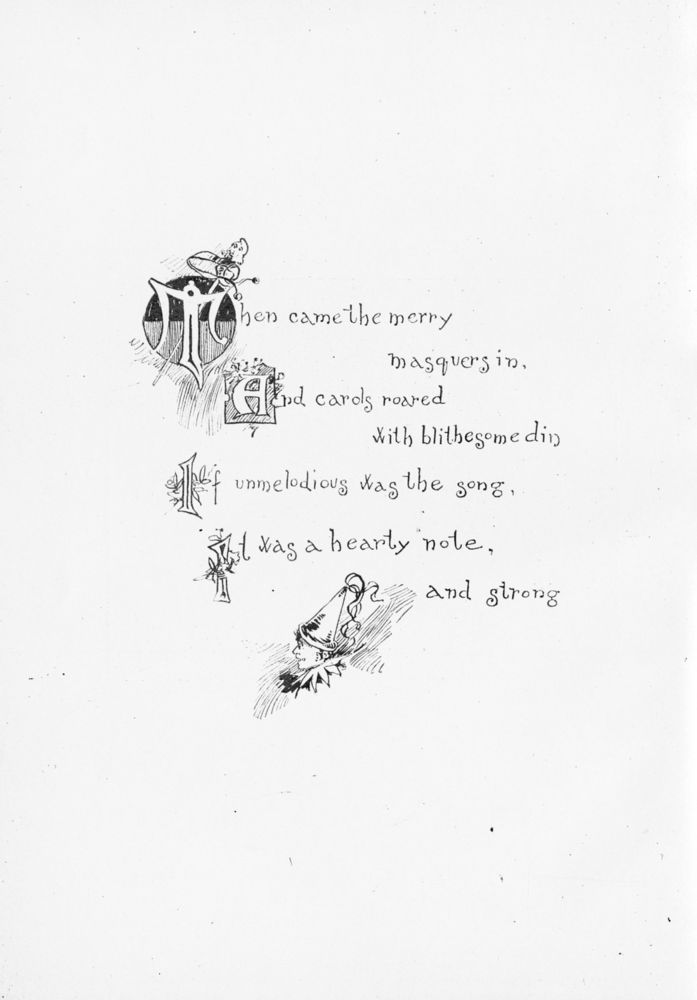 Then came the merry
masquers in,
And carols roared
with blithesome din
If unmelodious was the song,
It was a hearty note,
and strong